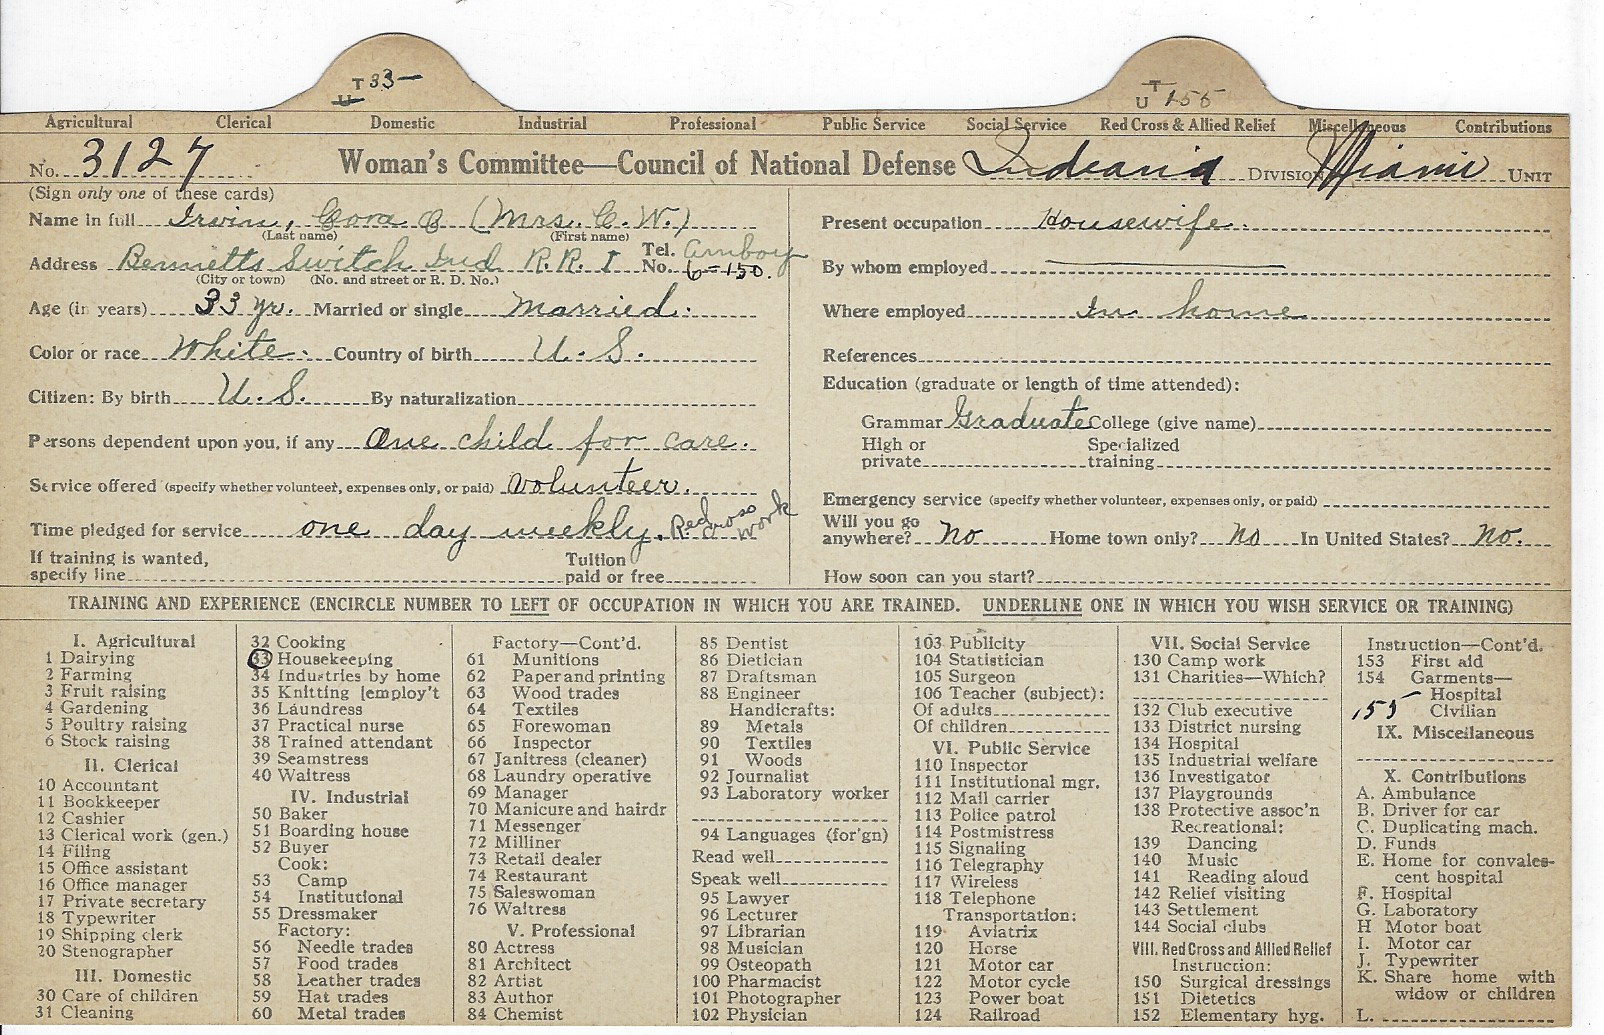 T 33—
U
T
U 155
Agricultural Clerical Domestic Industrial Professional Public Service Social Service Red Cross & Allied Relief Miscellaneous Contributions
No. 3127 Woman's Committee—Council of National Defense Indiana DIVISION Miami UNIT
(Sign only one of these cards)
Name in full Irvin, Cora C (Mrs. C. W.)
(Last name) (First name)
Address Bennetts Switch Ind R.R. 1 Tel. No. Amboy 6-150.
(City or town) (No. and street or R. D. No.)
Age (in years) 33 yr. Married or single Married.
Color or race White. Country of birth U.S.
Citizen: By birth U.S. By naturalization
Persons dependent upon you, if any One child for care.
Service offered (specify whether volunteer, expenses only, or paid) Volunteer.
Time pledged for service one day weekly. Red Cross work
If training is wanted, Tuition
specify line paid or free
Present occupation Housewife.
By whom employed
Where employed In home
References
Education (graduate or length of time attended):
Grammar Graduate College (give name)
High or Specialized
private training
Emergency service (specify whether volunteer, expenses only, or paid)
Will you go
anywhere? No Home town only? No In United States? No.
How soon can you start?
TRAINING AND EXPERIENCE (ENCIRCLE NUMBER TO LEFT OF OCCUPATION IN WHICH YOU ARE TRAINED. UNDERLINE ONE IN WHICH YOU WISH SERVICE OR TRAINING)
I. Agricultural
1 Dairying
2 Farming
3 Fruit raising
4 Gardening
5 Poultry raising
6 Stock raising
II. Clerical
10 Accountant
11 Bookkeeper
12 Cashier
13 Clerical work (gen.)
14 Filing
15 Office assistant
16 Office manager
17 Private secretary
18 Typewriter
19 Shipping clerk
20 Stenographer
III. Domestic
30 Care of children
31 Cleaning
32 Cooking
33 Housekeeping
34 Industries by home
35 Knitting [employ't
36 Laundress
37 Practical nurse
38 Trained attendant
39 Seamstress
40 Waitress
IV. Industrial
50 Baker
51 Boarding house
52 Buyer
Cook:
53 Camp
54 Institutional
55 Dressmaker
Factory:
56 Needle trades
57 Food trades
58 Leather trades
59 Hat trades
60 Metal trades
Factory—Cont'd.
61 Munitions
62 Paper and printing
63 Wood trades
64 Textiles
65 Forewoman
66 Inspector
67 Janitress (cleaner)
68 Laundry operative
69 Manager
70 Manicure and hairdr
71 Messenger
72 Milliner
73 Retail dealer
74 Restaurant
75 Saleswoman
76 Waitress
V. Professional
80 Actress
81 Architect
82 Artist
83 Author
84 Chemist
85 Dentist
86 Dietician
87 Draftsman
88 Engineer
Handicrafts:
89 Metals
90 Textiles
91 Woods
92 Journalist
93 Laboratory worker
94 Languages (for'gn)
Read well
Speak well
95 Lawyer
96 Lecturer
97 Librarian
98 Musician
99 Osteopath
100 Pharmacist
101 Photographer
102 Physician
103 Publicity
104 Statistician
105 Surgeon
106 Teacher (subject):
Of adults
Of children
VI. Public Service
110 Inspector
111 Institutional mgr.
112 Mail carrier
113 Police patrol
114 Postmistress
115 Signaling
116 Telegraphy
117 Wireless
118 Telephone
Transportation:
119 Aviatrix
120 Horse
121 Motor car
122 Motor cycle
123 Power boat
124 Railroad
VII. Social Service
130 Camp work
131 Charities—Which?
132 Club executive
133 District nursing
134 Hospital
135 Industrial welfare
136 Investigator
137 Playgrounds
138 Protective assoc'n
Recreational:
139 Dancing
140 Music
141 Reading aloud
142 Relief visiting
143 Settlement
144 Social clubs
VIII. Red Cross and Allied Relief
Instruction:
150 Surgical dressings
151 Dietetics
152 Elementary hyg.
Instruction—Cont'd.
153 First aid
154 Garments—
Hospital
155 Civilian
IX. Miscellaneous
X. Contributions
A. Ambulance
B. Driver for car
C. Duplicating mach.
D. Funds
E. Home for convales-
cent hospital
F. Hospital
G. Laboratory
H Motor boat
I. Motor car
J. Typewriter
K. Share home with
widow or children
L.